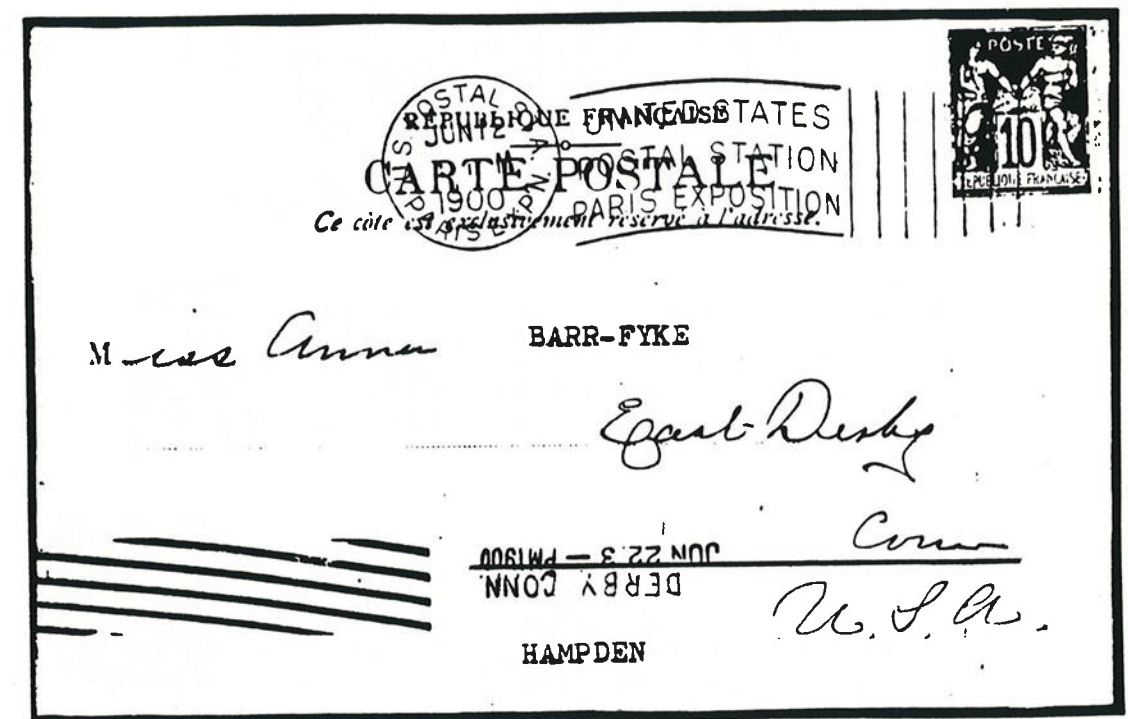 POSTE
10
REPUBLIQUE FRANCAISE
U.S. POSTAL STA.
JUN 12
1900
PARIS EXPN
UNITED STATES
POSTAL STATION
PARIS EXPOSITION
RÉPUBLIQUE FRANÇAISE
CARTE POSTALE
Ce côté est exclusivement réservé à l'adresse.
Miss Anna BARR-FYKE
East Derby
Conn
U. S. A.
DERBY CONN.
JUN 22. 3 — PM1900
HAMPDEN